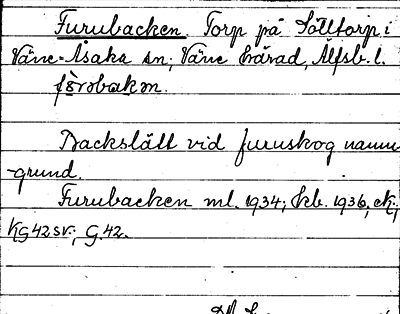 Furubacken. Torp på Sölltorp i
Väne-Åsaka sn, Väne härad, Älfsb. l.
fòrobakən.
Backslätt vid furuskog namn-
grund.
Furubacken ml. 1934; kb. 1936, ek;
KG 42 sv.; G. 42.